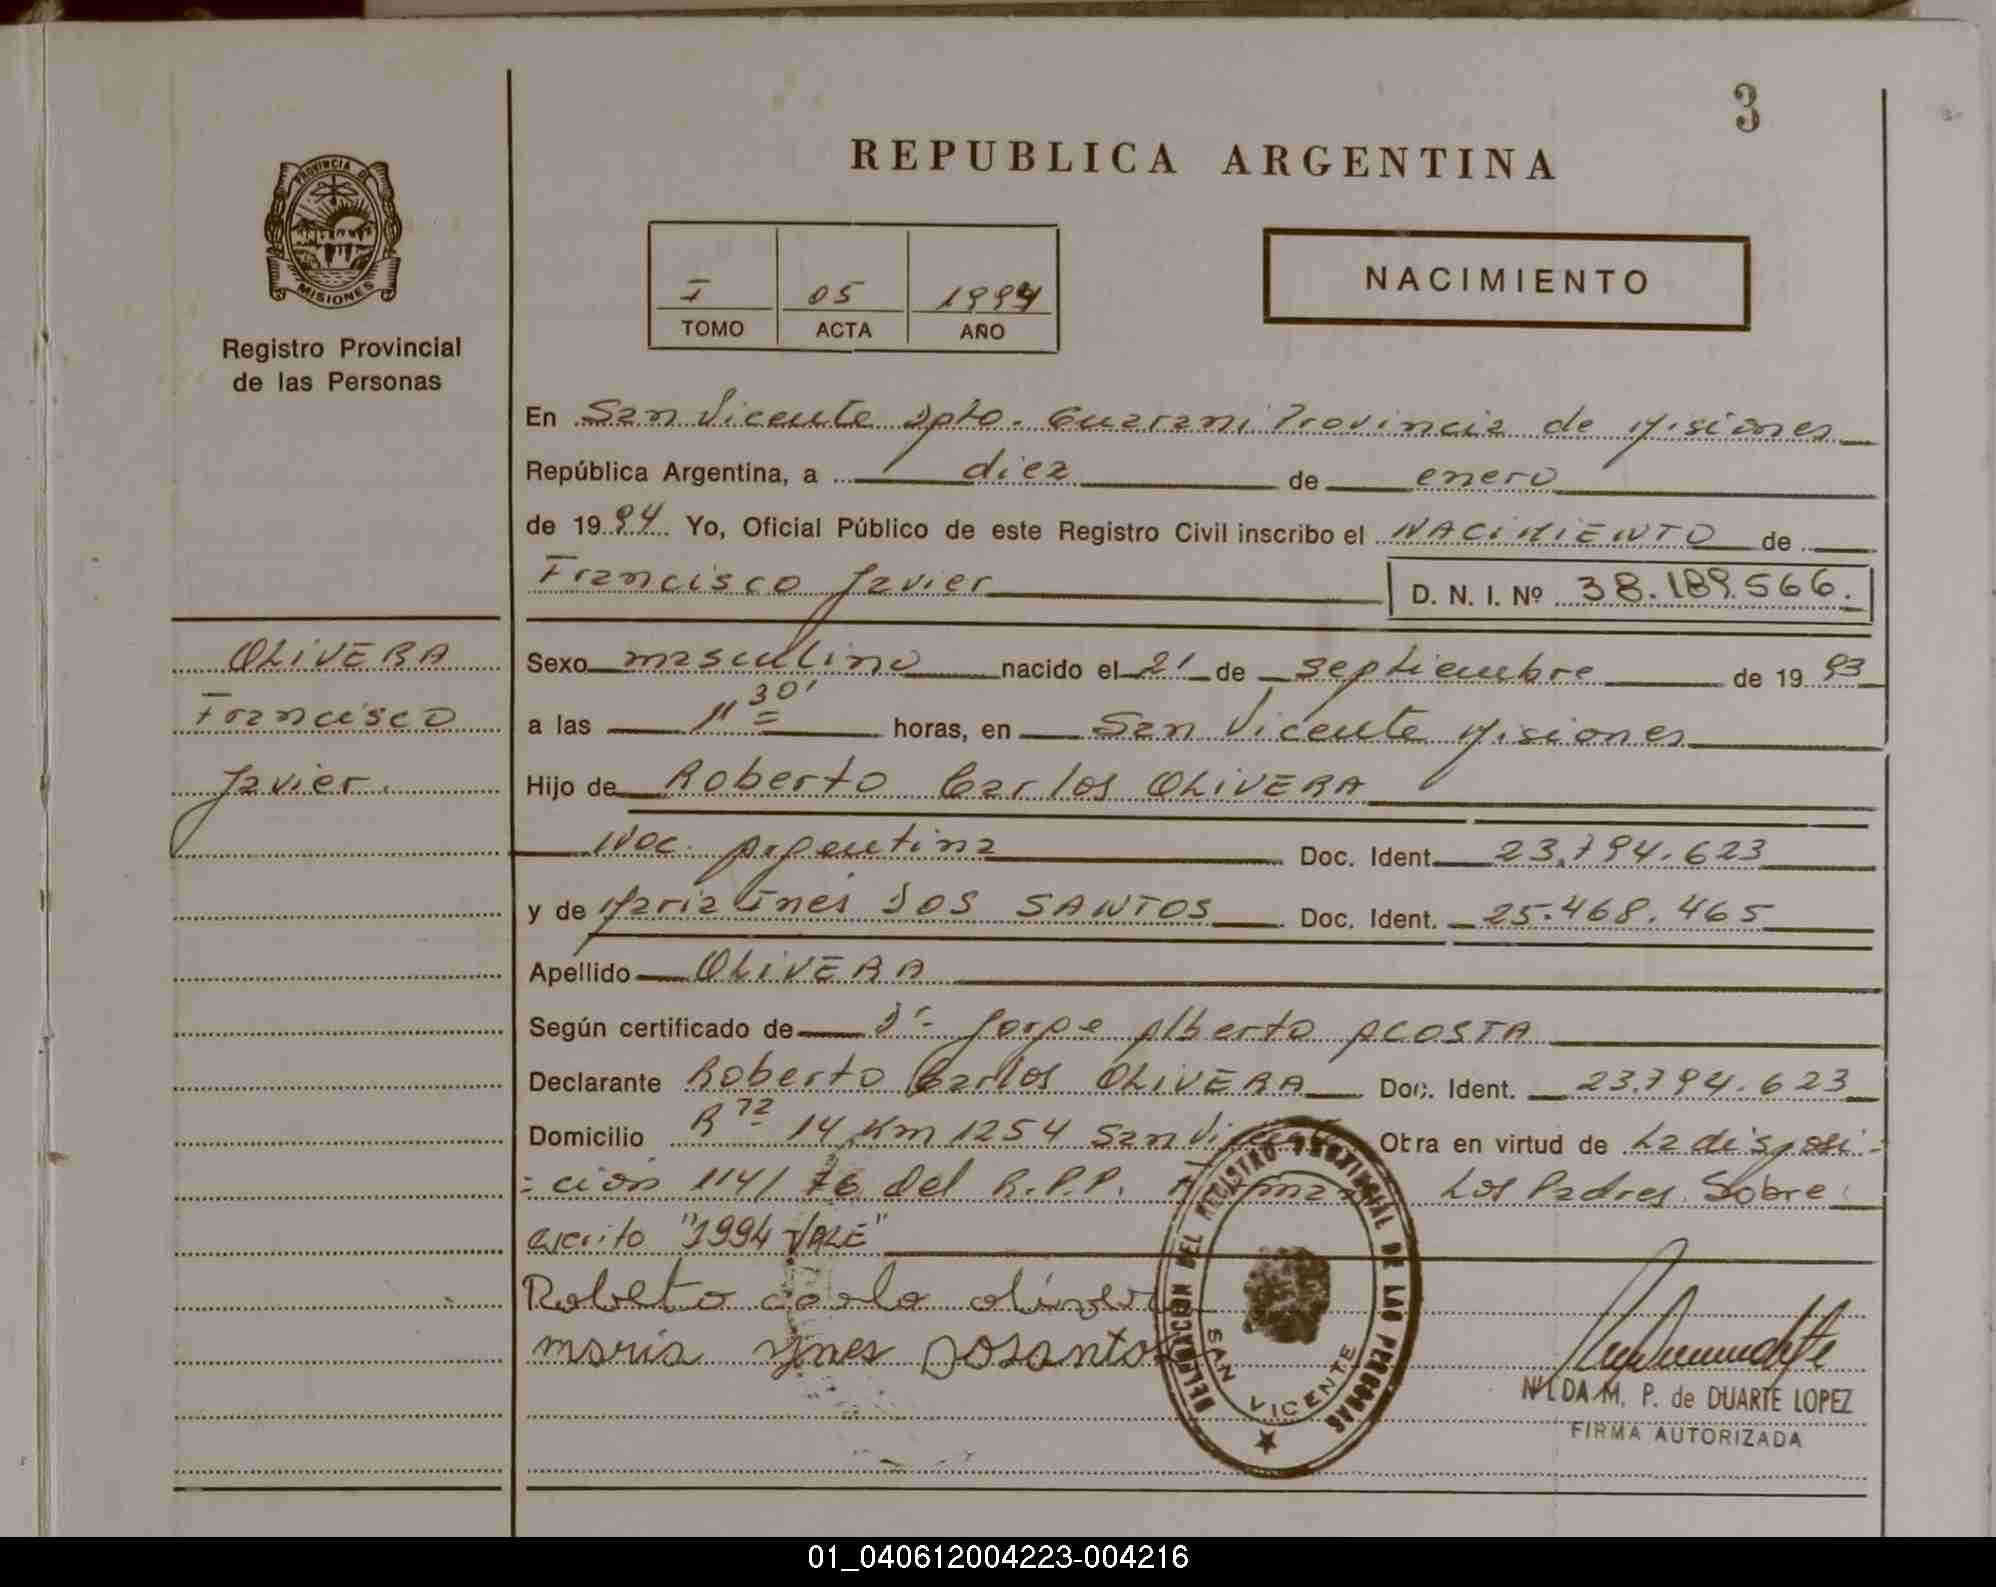 3
REPUBLICA ARGENTINA
PROVINCIA DE
MISIONES
Registro Provincial
de las Personas
I 05 1994
TOMO ACTA AÑO
NACIMIENTO
En San Vicente Dpto. Guarani Provincia de Misiones
República Argentina, a diez de enero
de 1994 Yo, Oficial Público de este Registro Civil inscribo el NACIMIENTO de
Francisco Javier D. N. I. Nº 38.189.566.
OLIVERA
Francisco
Javier.
Sexo masculino nacido el 21 de septiembre de 1993
a las 11 30' horas, en San Vicente Misiones
Hijo de Roberto Carlos OLIVERA
Nac. Argentina Doc. Ident. 23.794.623
y de Maria Ines DOS SANTOS Doc. Ident. 25.468.465
Apellido OLIVERA
Según certificado de Dr. Jorge Alberto ACOSTA
Declarante Roberto Carlos OLIVERA Doc. Ident. 23.794.623
Domicilio R 14 Km 1254 San Vicente Obra en virtud de La disposi-
=ción 114/76 del R.P.P. Firman Los Padres. Sobre
escrito "1994 VALE"
Roberto carlo oliver
maria ynes Dosantos
DELEGACION DEL REGISTRO PROVINCIAL DE LAS PERSONAS
SAN VICENTE
NILDA M. P. de DUARTE LOPEZ
FIRMA AUTORIZADA
01_040612004223-004216